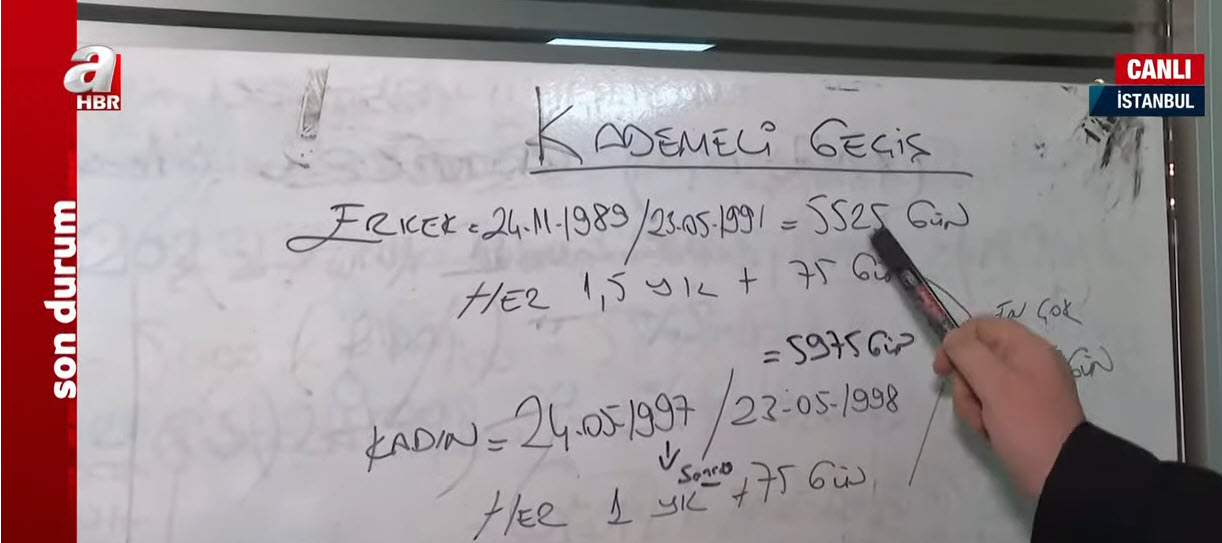 a
HBR
CANLI
İSTANBUL
son durum
KADEMELİ GEÇİŞ
ERKEK = 24.11.1989 / 23.05.1991 = 5525 GÜN
HER 1,5 YIL + 75 GÜN
= 5975 GÜN
EN ÇOK
GÜN
KADIN = 24.05.1997 / 23.05.1998
Sonra
HER 1 YIL + 75 GÜN